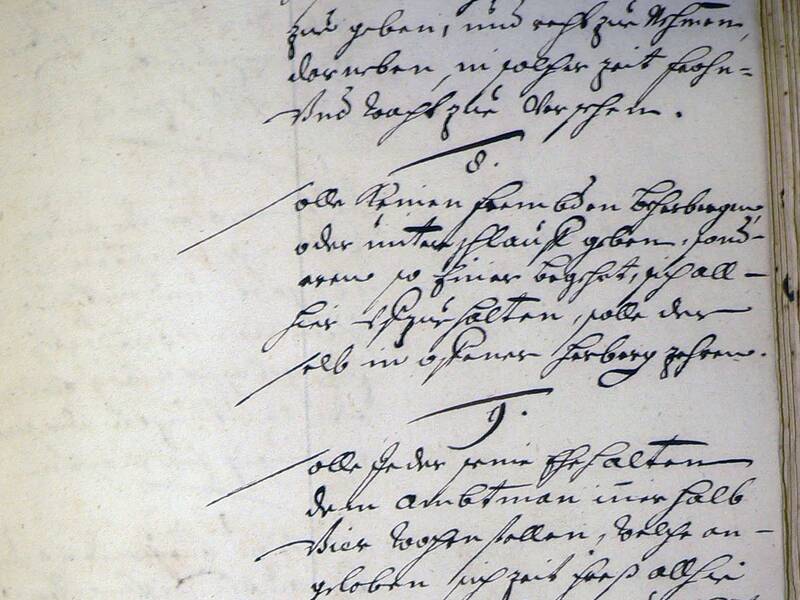 zue geben, und recht zue Nehmen,
darneben, in solcher zeit frohn-
Und Wacht zue Versehen.
8.
solle Keinen frembden beherbergen,
oder unterschlauff geben, sond-
eren so Einer begehrt, sich all-
hier Aufzuehalten, solle der
selb in offener herberg zehren.
9.
solle Jeder seine Ehehalten
dem Ambtman innerhalb
Vier Wochen stellen, Welche an-
geloben sich zeit ihres allhie